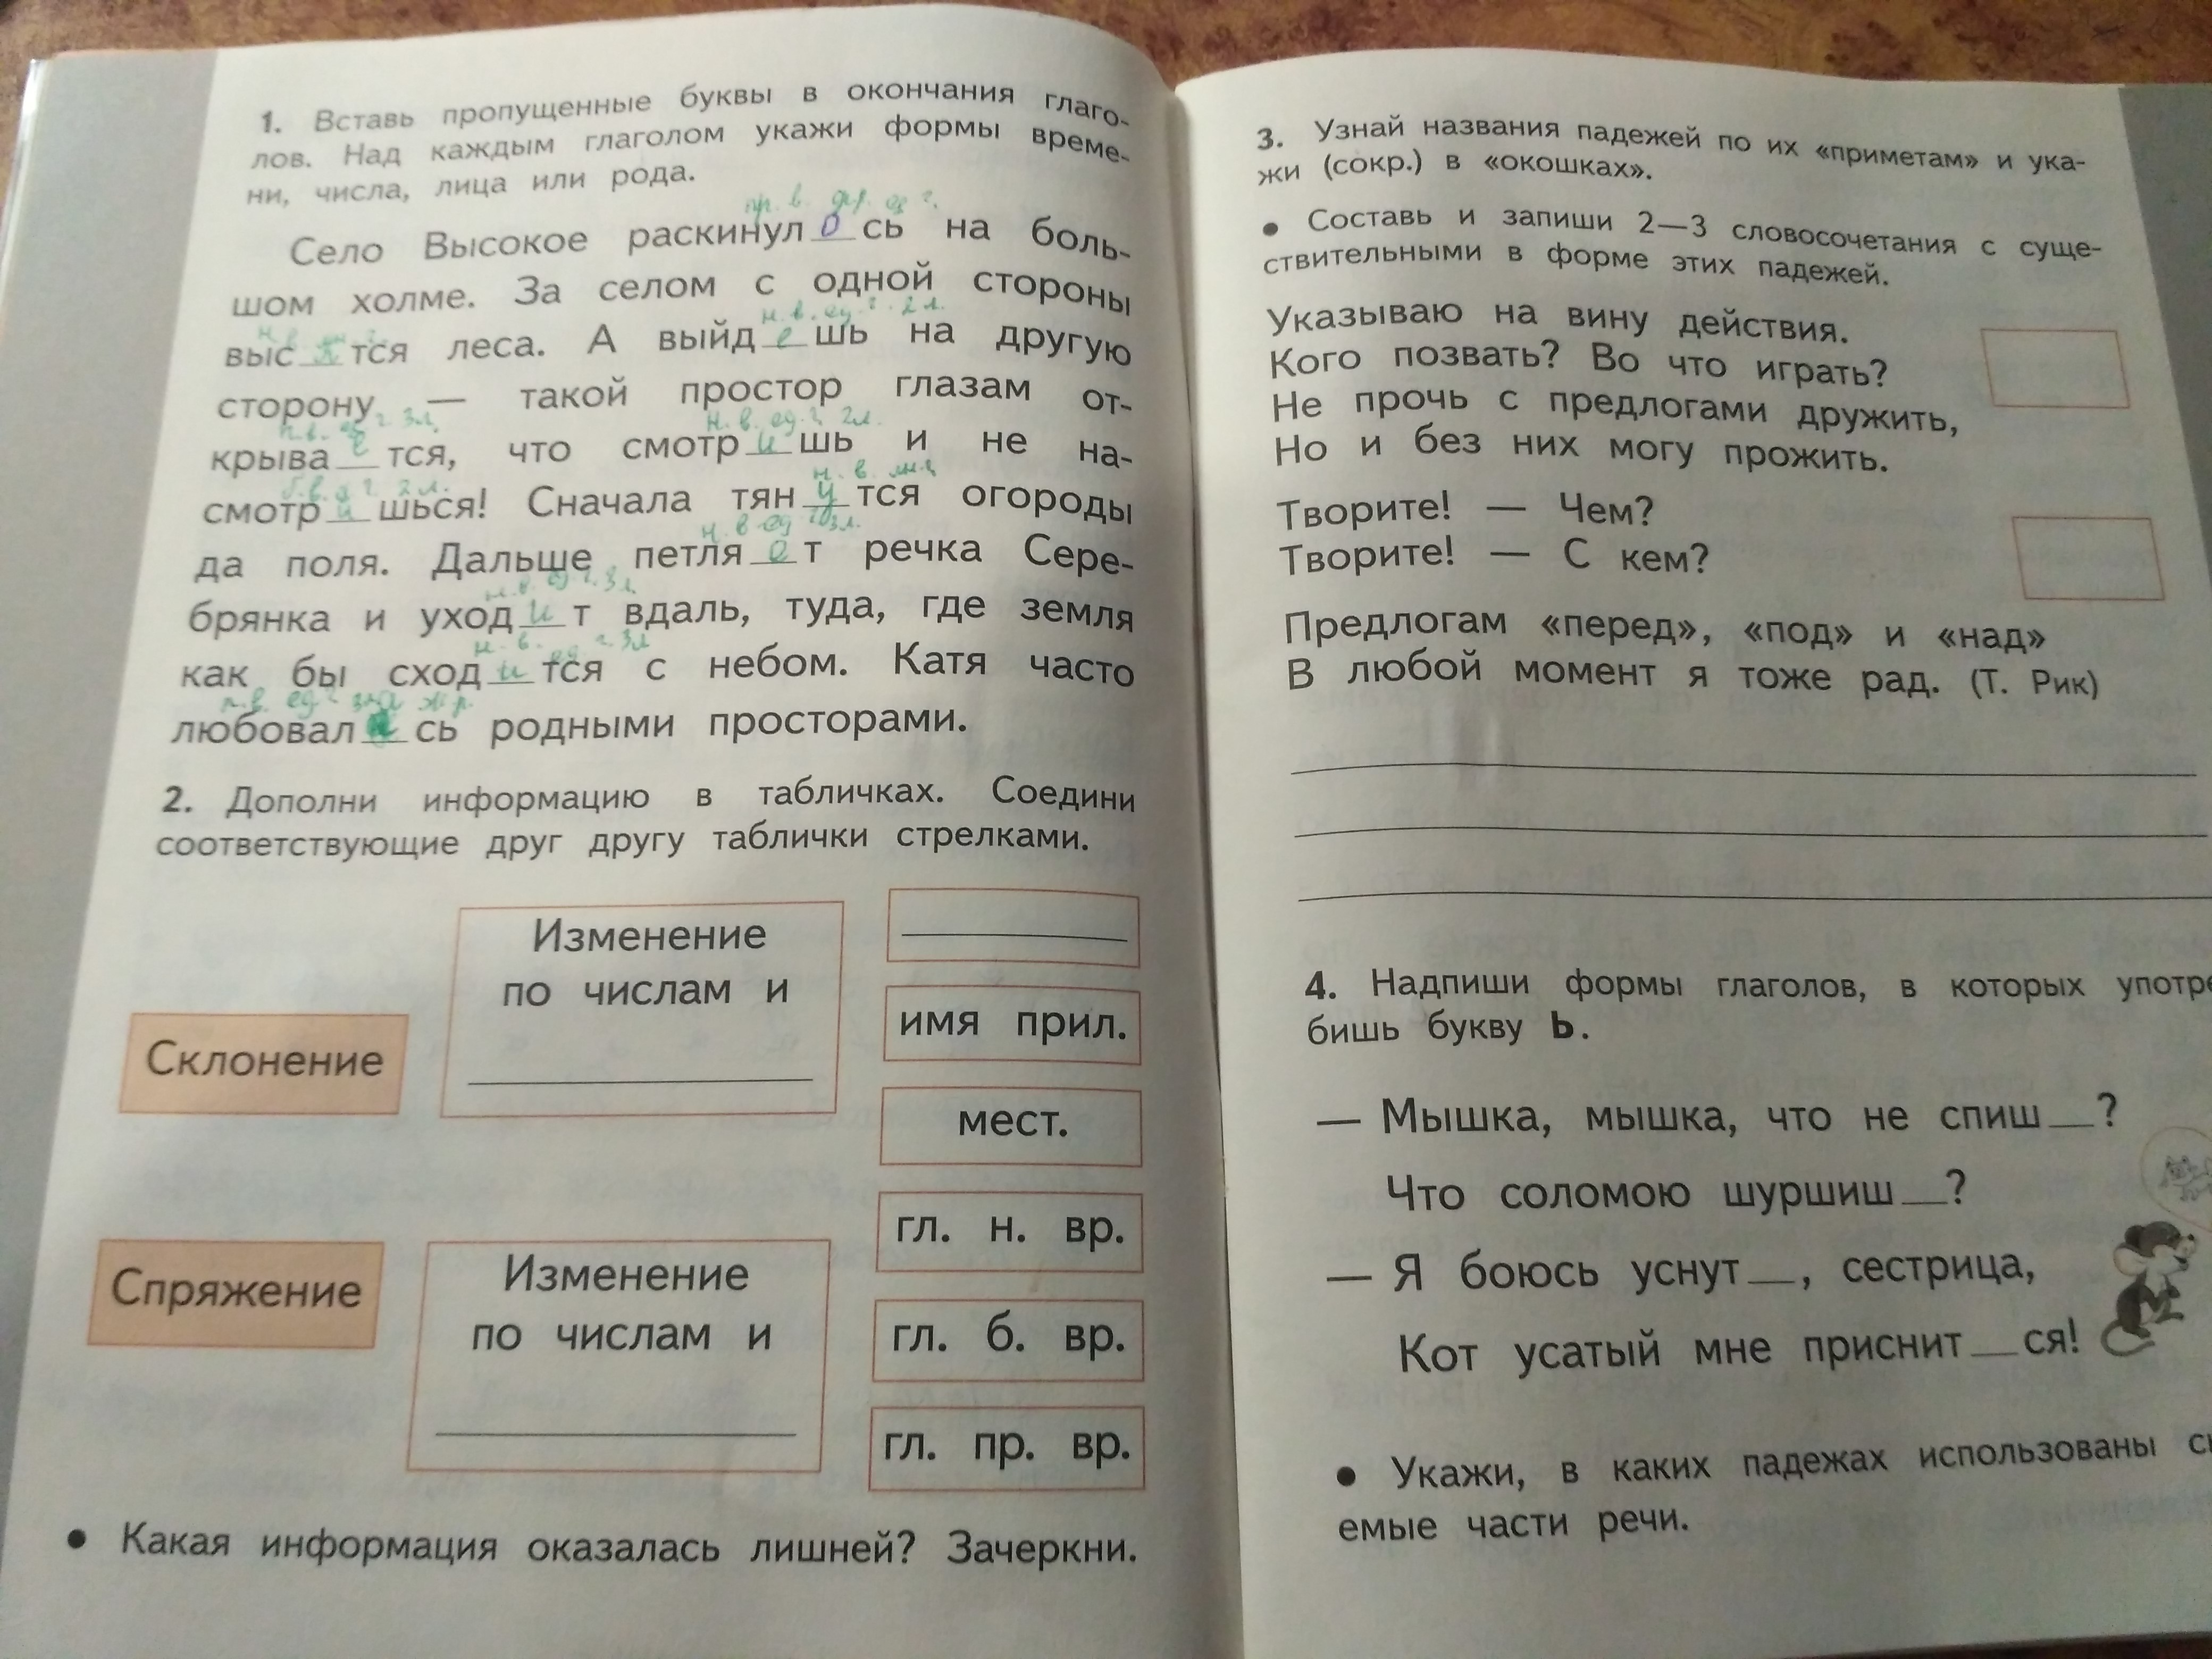 1. Вставь пропущенные буквы в окончания глаго-
лов. Над каждым глаголом укажи формы време-
ни, числа, лица или рода.
пр. в. ед. ч.
Село Высокое раскинул о сь на боль-
шом холме. За селом с одной стороны
н. в. ед. ч. 2 л.
выс я тся леса. А выйд е шь на другую
сторону — такой простор глазам от-
ч. 3л. н. в. ед. ч. 2л.
крыва е тся, что смотр и шь и не на-
2 л. н. в. мн.ч.
смотр и шься! Сначала тян у тся огороды
н. в ед 3л.
да поля. Дальше петля е т речка Сере-
н. в. ед. ч. 3 л.
брянка и уход и т вдаль, туда, где земля
н. в. ед. ч. 3л
как бы сход и тся с небом. Катя часто
п.в. ед ж р.
любовал а сь родными просторами.
2. Дополни информацию в табличках. Соедини
соответствующие друг другу таблички стрелками.
Склонение
Изменение
по числам и
имя прил.
мест.
Спряжение
Изменение
по числам и
гл. н. вр.
гл. б. вр.
гл. пр. вр.
• Какая информация оказалась лишней? Зачеркни.
3. Узнай названия падежей по их «приметам» и ука-
жи (сокр.) в «окошках».
• Составь и запиши 2—3 словосочетания с суще-
ствительными в форме этих падежей.
Указываю на вину действия.
Кого позвать? Во что играть?
Не прочь с предлогами дружить,
Но и без них могу прожить.
Творите! — Чем?
Творите! — С кем?
Предлогам «перед», «под» и «над»
В любой момент я тоже рад. (Т. Рик)
4. Надпиши формы глаголов, в которых употре
бишь букву ь.
— Мышка, мышка, что не спиш__?
Что соломою шуршиш__?
— Я боюсь уснут__, сестрица,
Кот усатый мне приснит__ся!
• Укажи, в каких падежах использованы
емые части речи.